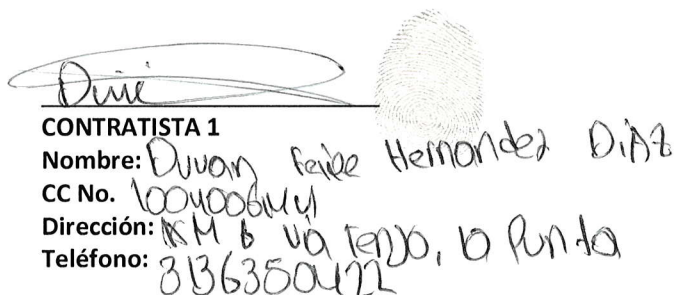 CONTRATISTA 1
Nombre: Duvan Felipe Hernandez DiAz
CC No. 1004006144
Dirección: KM 6 via Tenjo, la Punta
Teléfono: 3136350422